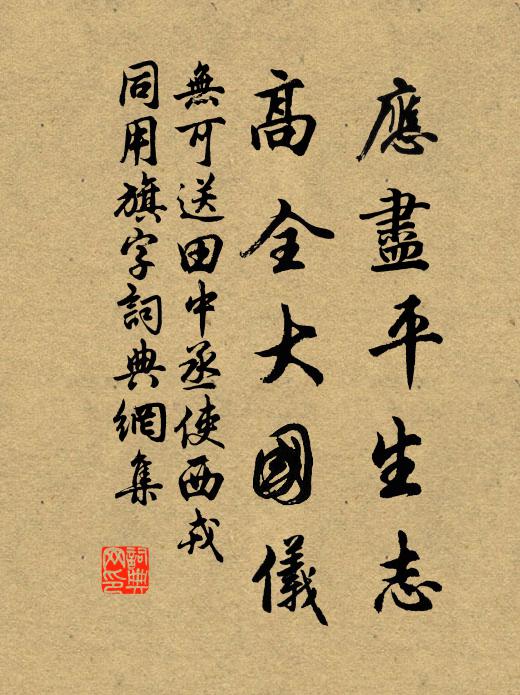 應盡平生志
高全大國儀
無可送田中丞使西戎
同用旗字詞典網集
詞典网印